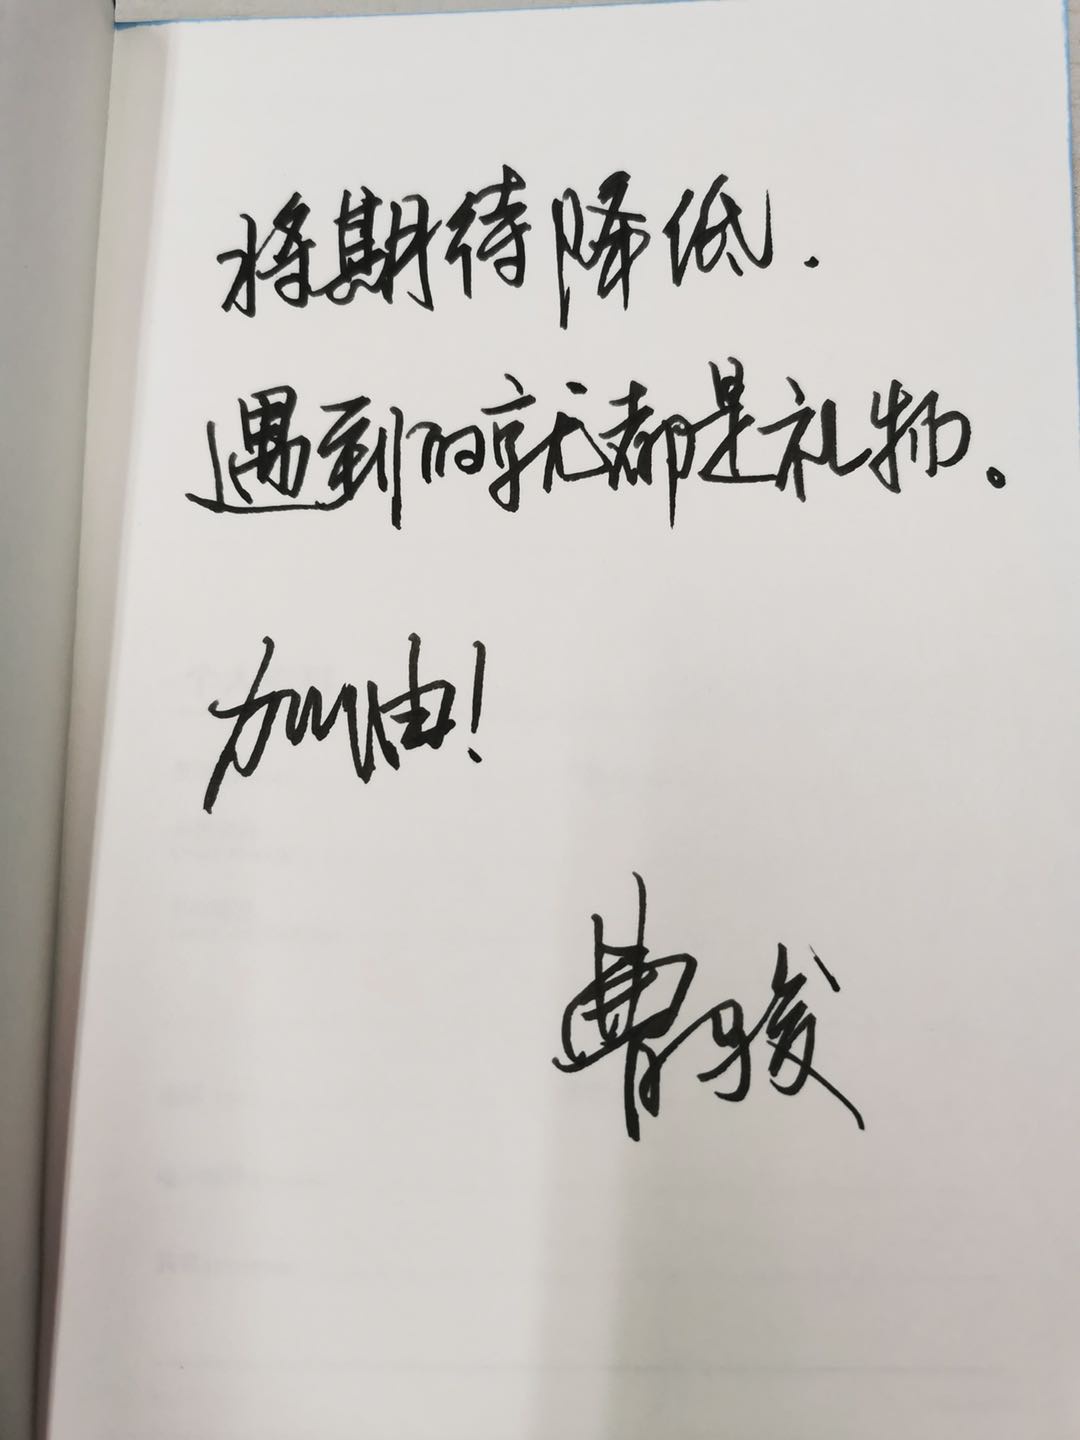 将期待降低.
遇到的就都是礼物。
加油!
曹骏